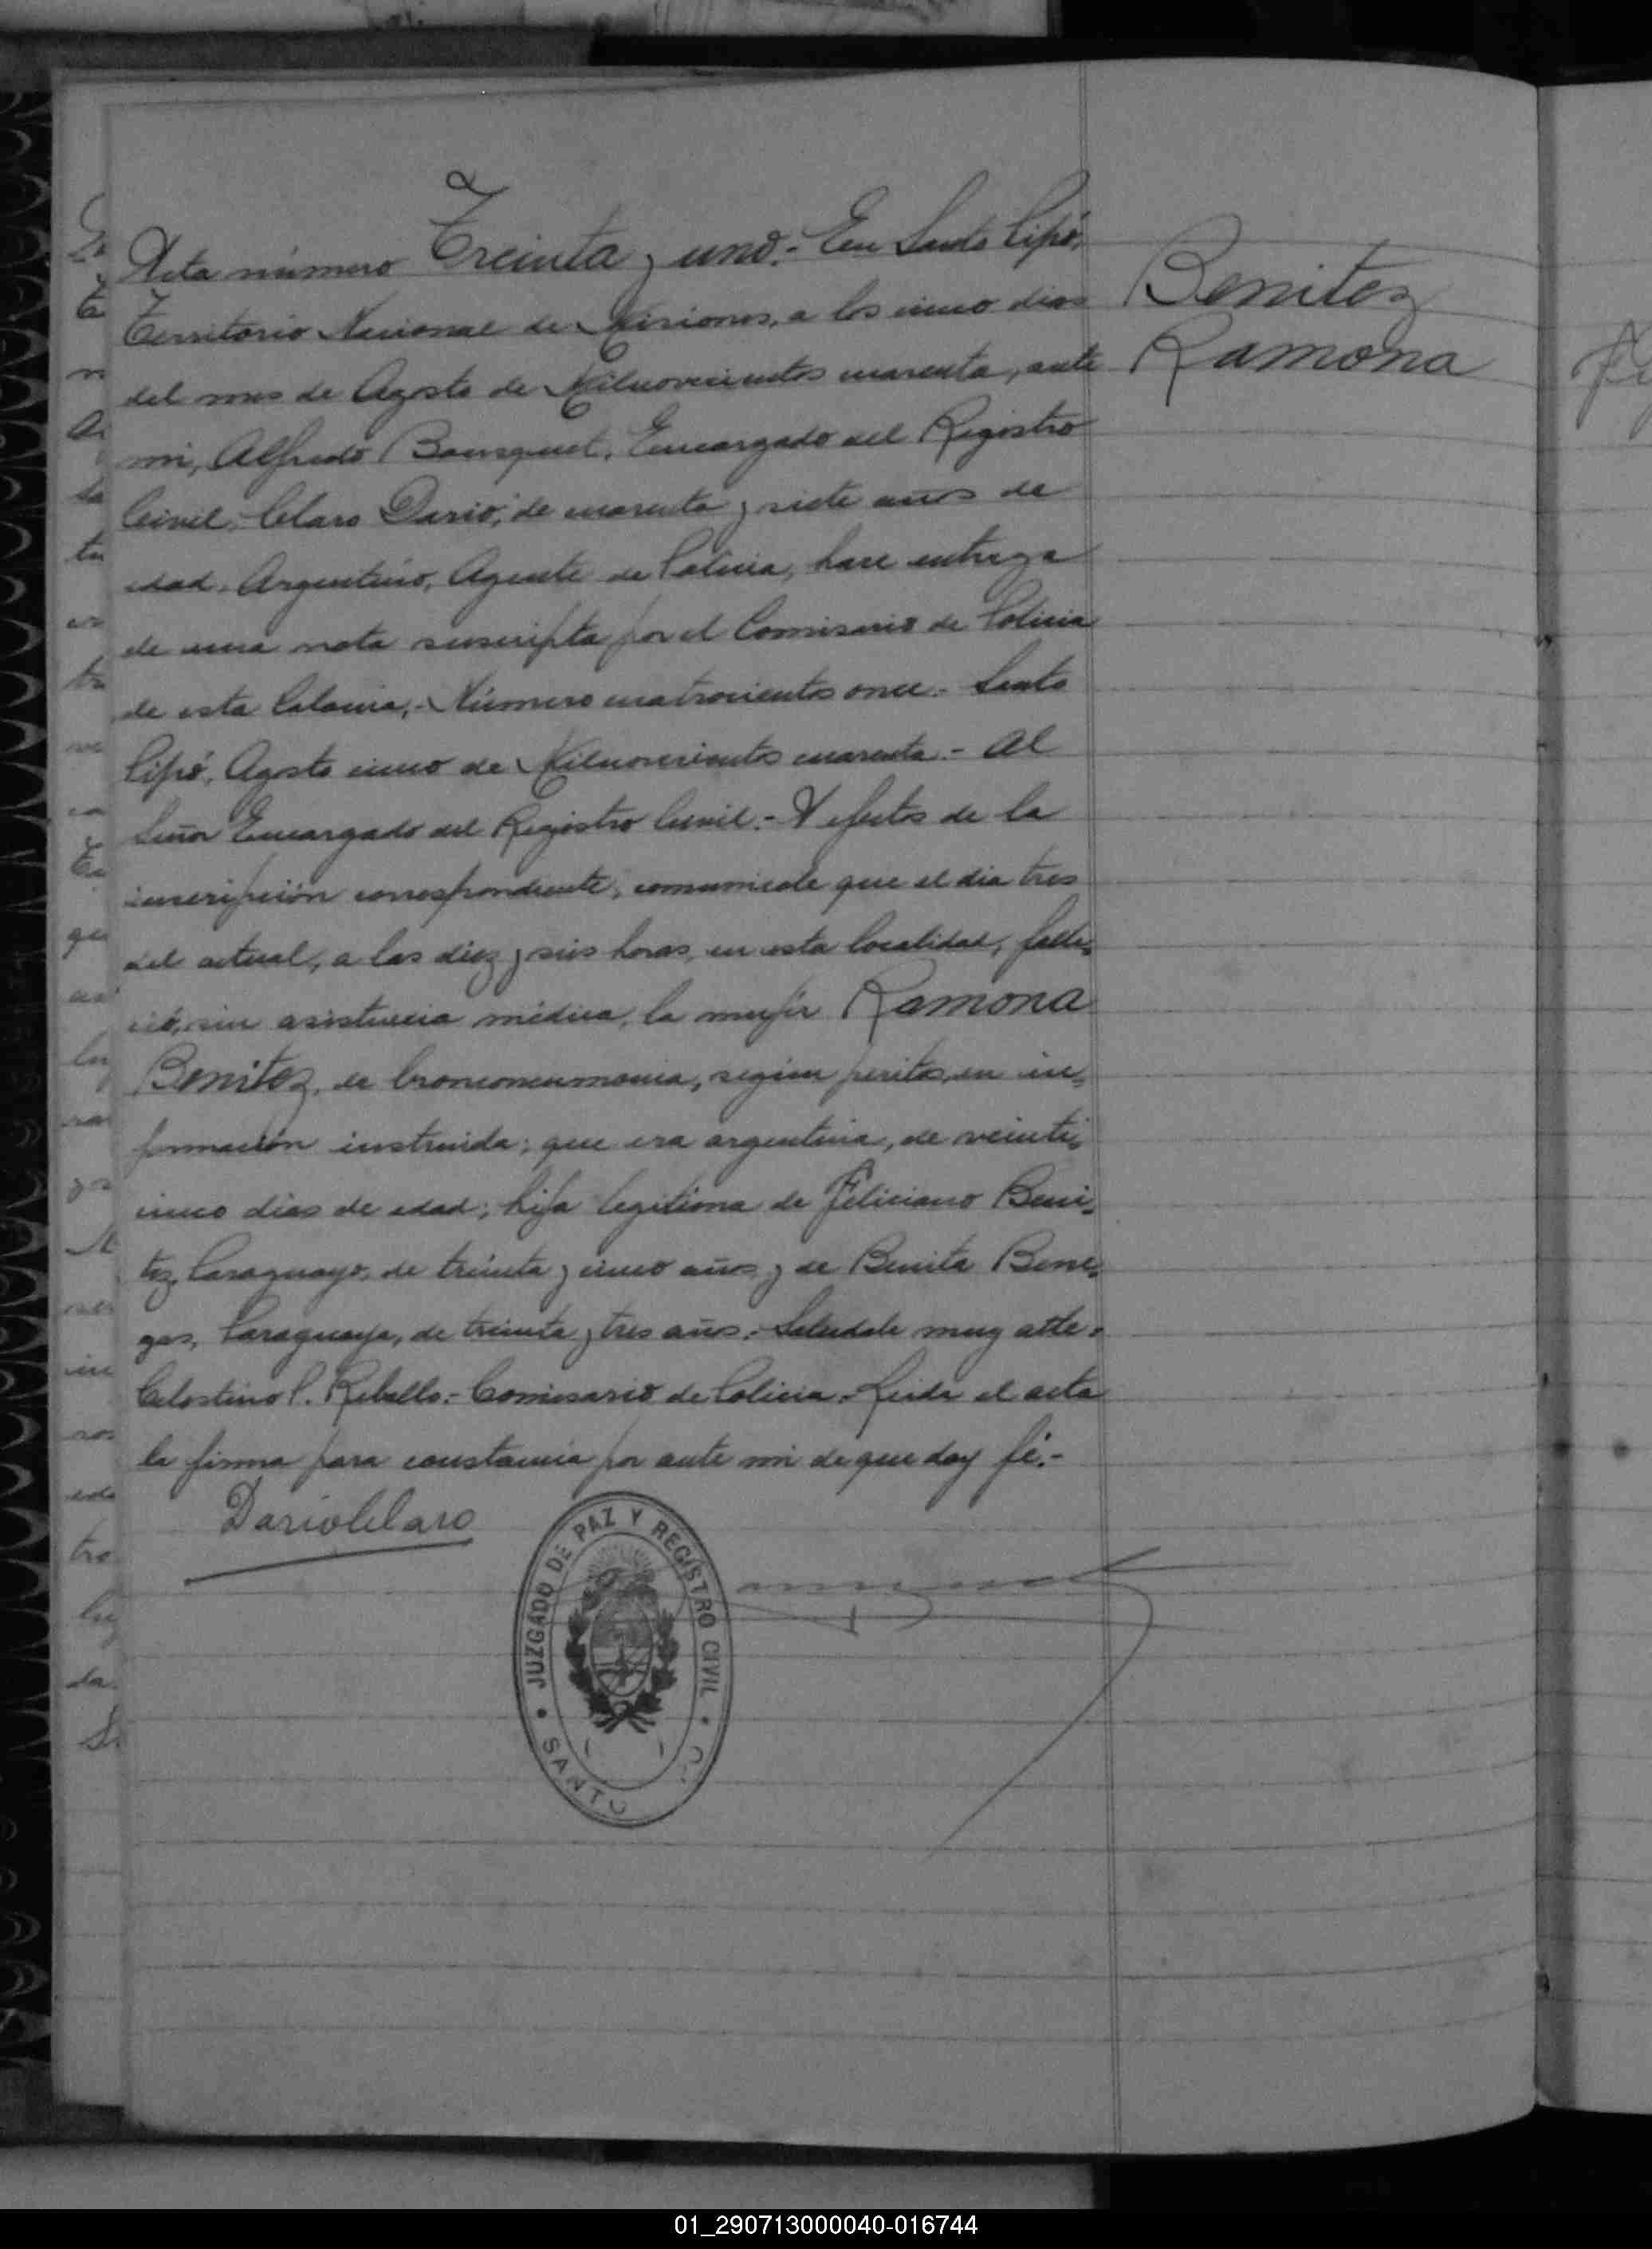 Acta número Treinta y uno.- En Santo Pipó,
Territorio Nacional de Misiones, a los cinco dias
del mes de Agosto de Milnovecientos cuarenta, ante
mi, Alfredo Bousquet, Encargado del Registro
Civil, Claro Dario, de cuarenta y siete años de
edad, Argentino, Agente de Policia, hace entrega
de una nota suscripta por el Comisario de Policia
de esta Colonia,- Número cuatrocientos once.- Santo
Pipó, Agosto cinco de Milnovecientos cuarenta.- Al
Señor Encargado del Registro Civil.- A efectos de la
inscripción correspondiente, comunícole que el dia tres
del actual, a las diez y seis horas, en esta localidad, falle-
ció, sin asistencia médica, la mujer Ramona
Benitez, de bronconeumonia, según peritos, en in-
formación instruida; que era argentina, de veinti-
cinco dias de edad; hija legitima de Feliciano Beni-
tez, Paraguayo, de treinta y cinco años y de Benita Bene-
gas, Paraguaya, de treinta y tres años.- Salúdole muy atte.
Celestino P. Rebollo.- Comisario de Policia.- Leida el acta
la firma para constancia por ante mi de que doy fé.-
Dario Claro
JUZGADO DE PAZ Y REGISTRO CIVIL
SANTO
Benitez
Ramona
01_290713000040-016744